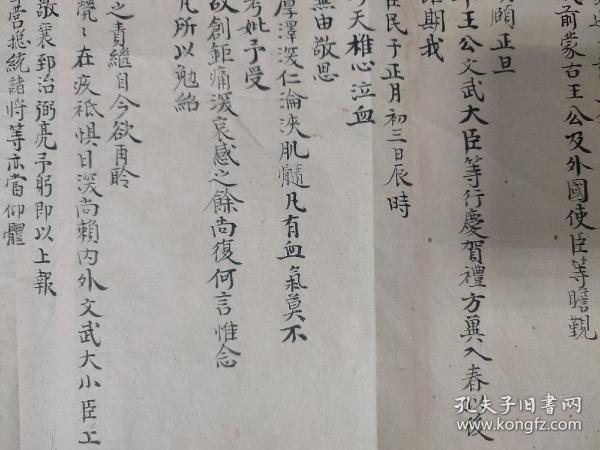 武前蒙古王公及外國使臣等瞻覲
頤正旦
王公文武大臣等行慶賀禮方冀入春以後
期我
民于正月初三日辰時
天椎心泣血
無由敬思
厚澤深仁淪浹肌髓凡有血氣莫不
考妣予受
故創鉅痛深哀感之餘尚復何言惟念
凡所以勉紹
之責繼自今欲再聆
煢煢在疚祗惧日深尚賴內外文武大小臣工
敬襄郅治弼亮予躬即以上報
營總統諸將等亦當仰體
孔夫子旧书网
book.kongfz.com